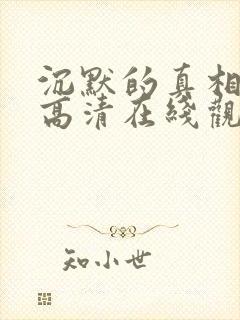 沉默的真相
高清在綫觀
知小世